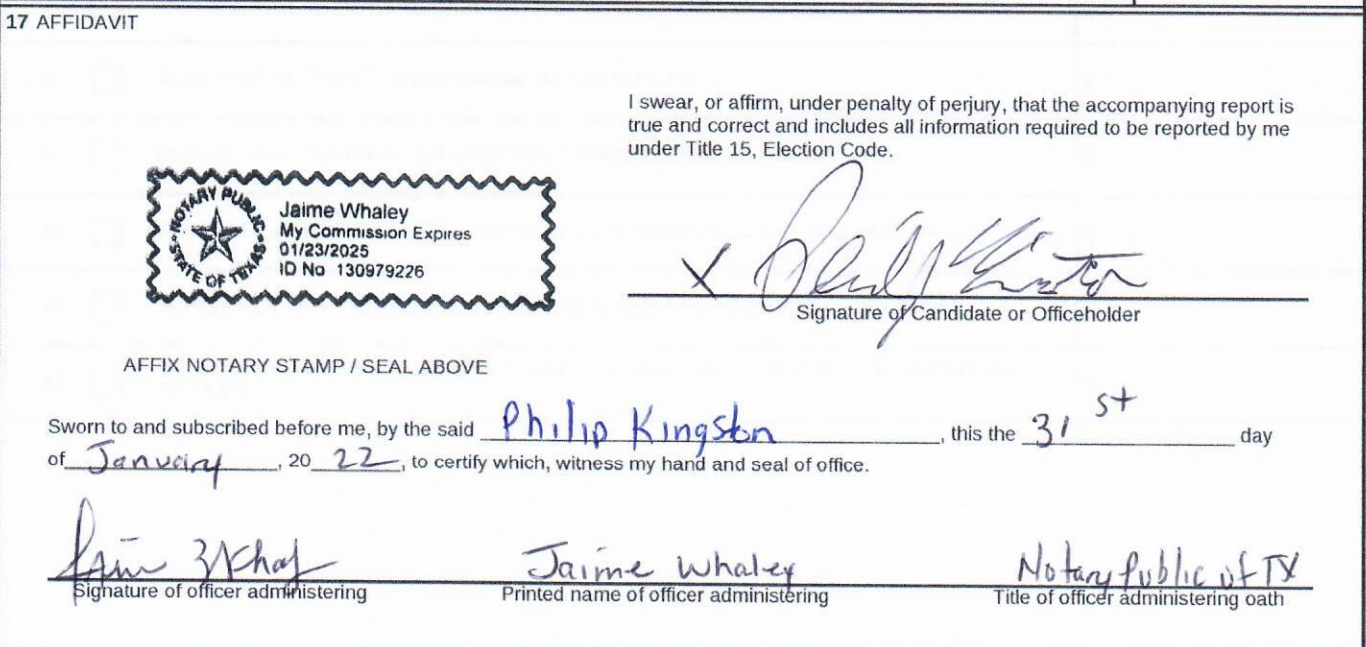 17 AFFIDAVIT
I swear, or affirm, under penalty of perjury, that the accompanying report is
true and correct and includes all information required to be reported by me
under Title 15, Election Code.
NOTARY PUBLIC
STATE OF TEXAS
Jaime Whaley
My Commission Expires
01/23/2025
ID No 130979226
X Philip Kingston
Signature of Candidate or Officeholder
AFFIX NOTARY STAMP / SEAL ABOVE
Sworn to and subscribed before me, by the said Philip Kingston, this the 31st day
of January, 2022, to certify which, witness my hand and seal of office.
Signature of officer administering
Jaime Whaley
Printed name of officer administering
Notary Public of TX
Title of officer administering oath